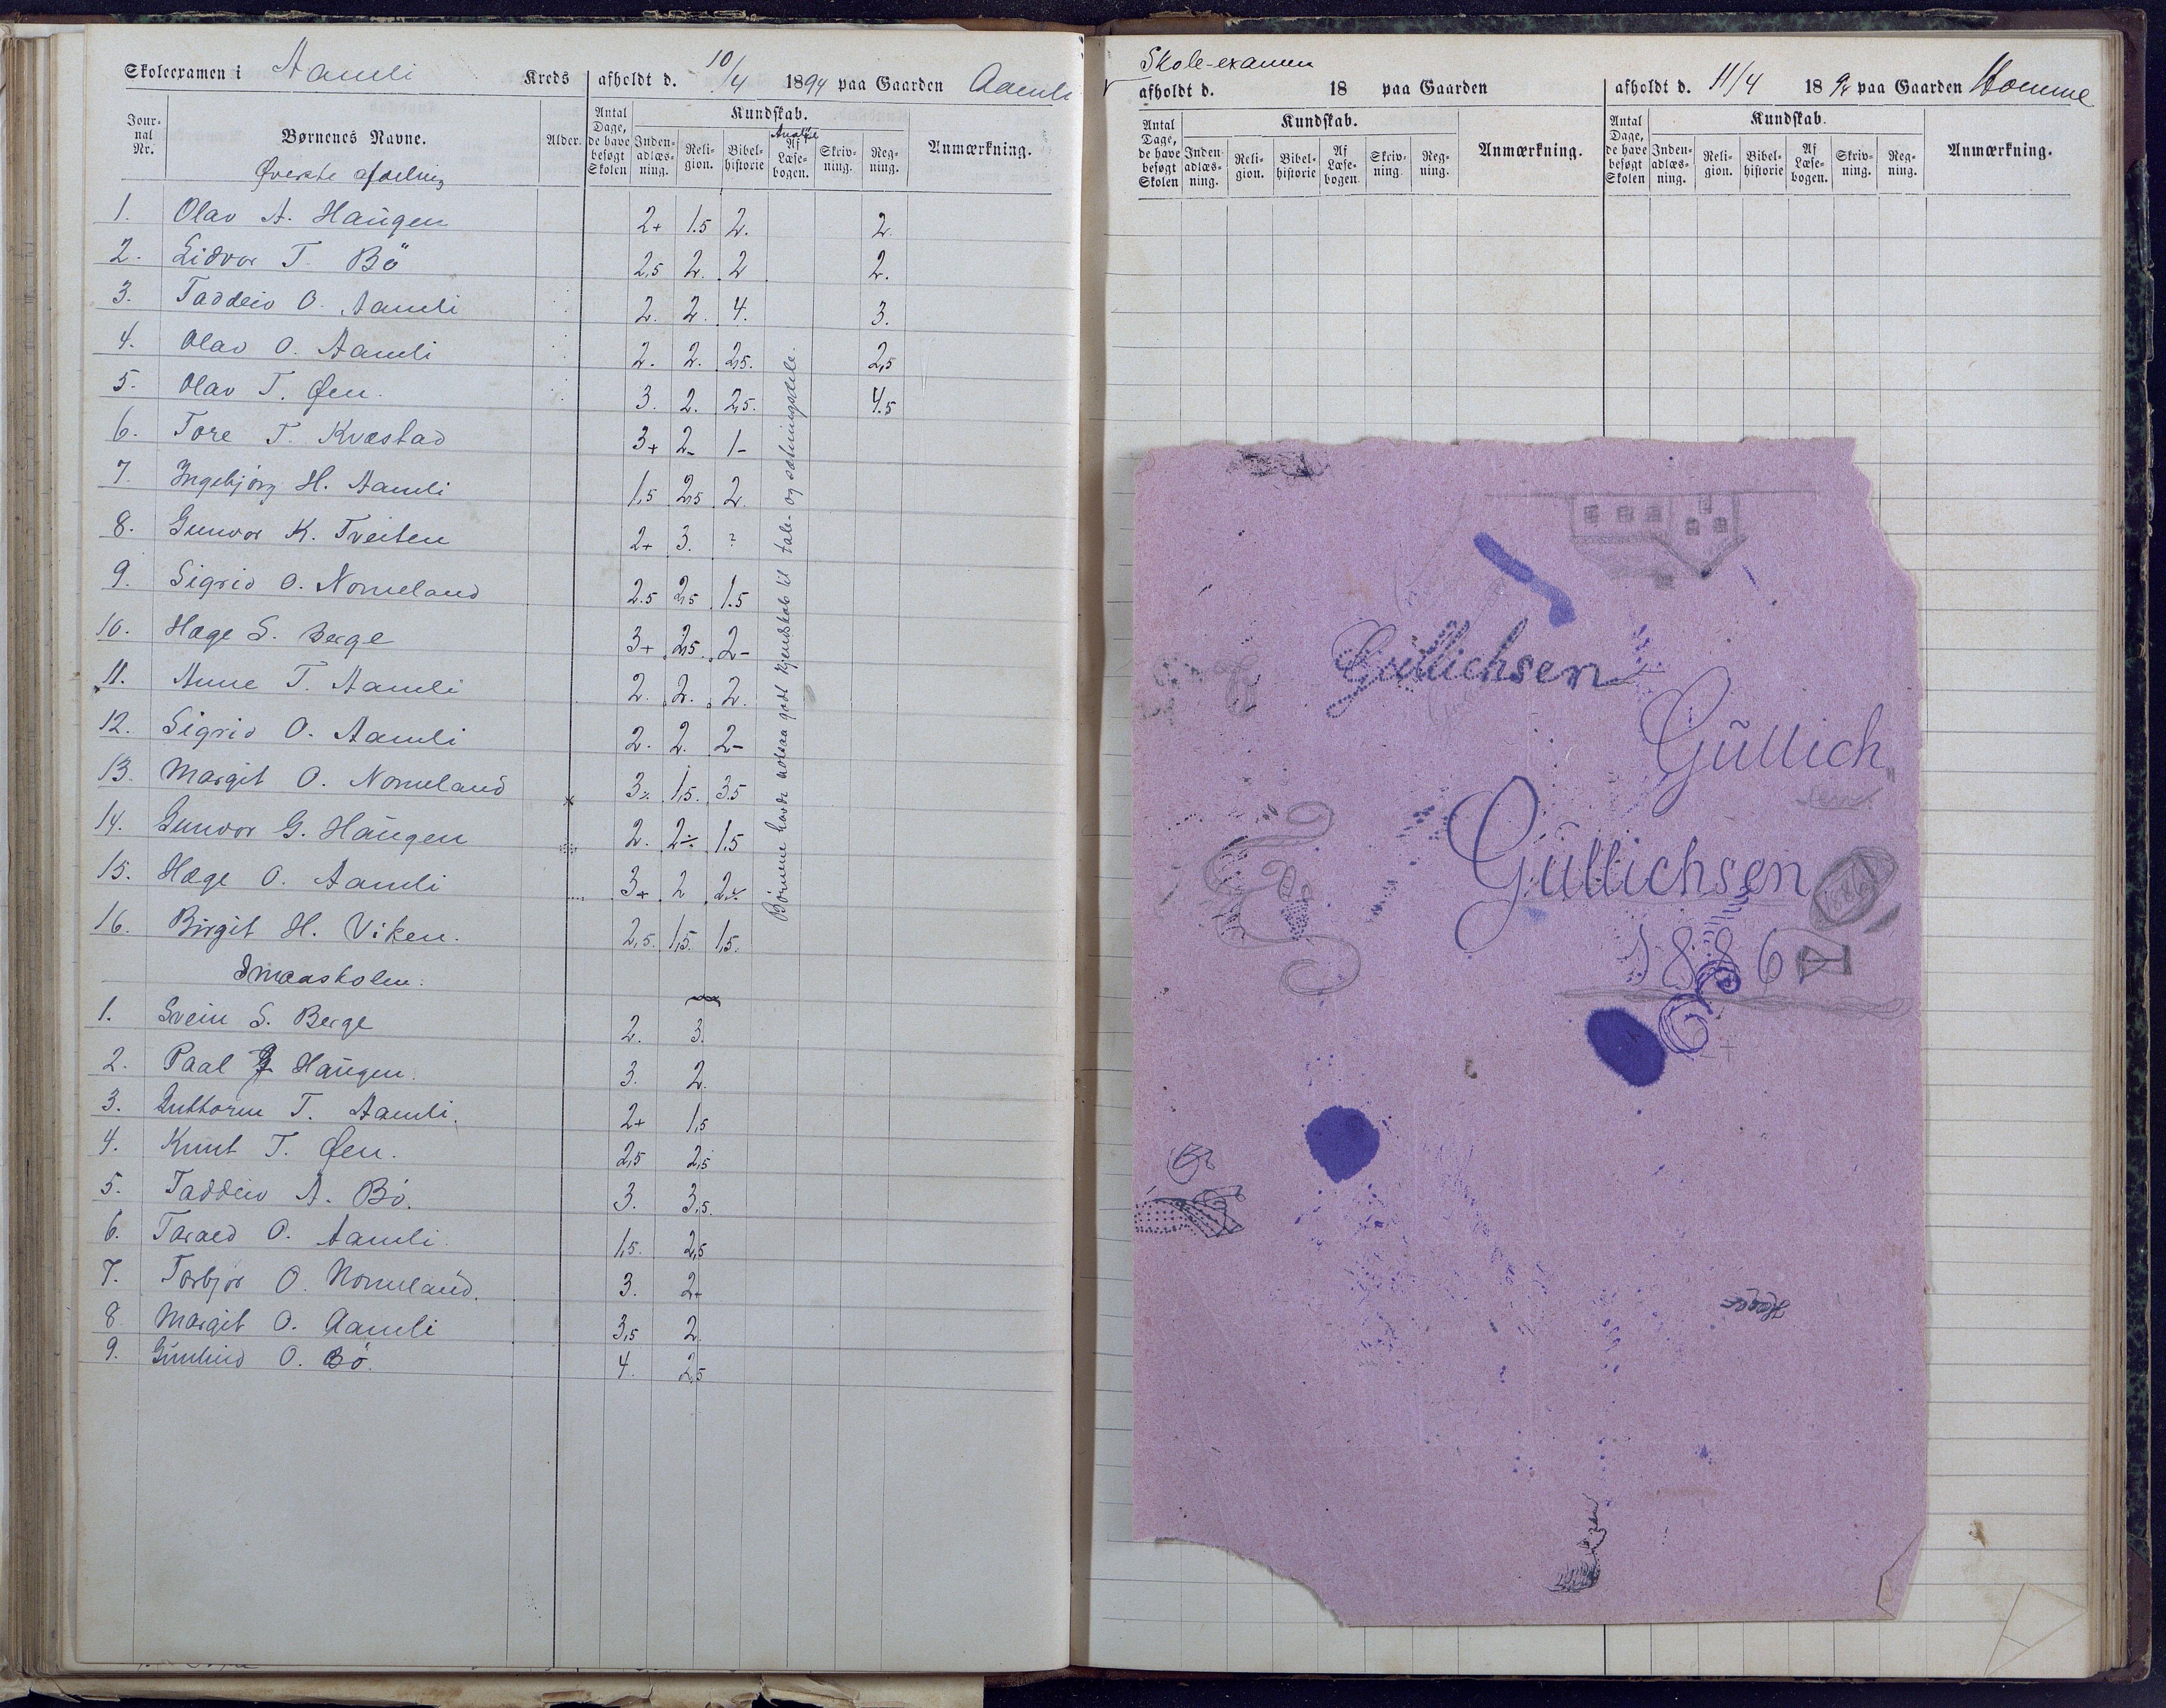 Skoleexamen i Aamli Kreds afholdt d. 10/4 1894 paa Gaarden Aamli
Jour-nal Nr. Børnenes Navne. Alder. Antal Dage, de have besøgt Skolen Kundskab. Inden-adlæs-ning. Reli-gion. Bibel-historie Analyse Af Læse-bogen. Skriv-ning. Reg-ning. Anmærkning.
Øverste afdeling
1. Olav A. Haugen 2+ 1.5 2. 2
2. Lidvor T. Bö 2,5 2. 2 2.
3. Taddeiv O. Aamli 2. 2. 4. 3.
4. Olav O. Aamli 2. 2. 2,5. 2,5
5. Olav T. Øen. 3. 2. 2,5. 4.5
6. Tore T. Kvæstad 3+ 2- 1-
7. Ingebjørg H. Aamli 1,5 2,5 2.
8. Gunvor K. Tveiten 2+ 3. ?
9. Sigrid O. Nomeland 2.5 2,5 1.5
10. Hæge S. Berge 3+ 2,5. 2-
11. Anne T. Aamli 2. 2. 2.
12. Sigrid O. Aamli 2. 2. 2-
13. Margit O. Nomeland x 3÷ 1,5. 3.5
14. Gunvor G. Haugen 2. 2÷ 1.5
15. Hæge O. Aamli 3+ 2 2÷
16. Birgit H. Viken. 2,5. 1,5. 1,5.
Børnene havde nogsaa godt kjendskab til tale- og sætningsdele.
Smaaskolen.
1. Svein S. Berge 2. 3.
2. Paal G Haugen. 3. 2.
3. Guttorm T. Aamli. 2+ 1,5
4. Knut T. Øen. 2,5 2,5
5. Taddeiv A. Bö. 3. 3,5.
6. Tarald O. Aamli. 1,5. 2,5
7. Torbjør O. Nomeland. 3. 2+
8 Margit O. Aamli 3,5 2.
9. Gunhild O. Bö. 4. 2,5
Skole-examen
afholdt d. 18 paa Gaarden
Antal Dage, de have besøgt Skolen Kundskab. Inden-adlæs-ning. Reli-gion. Bibel-historie Af Læse-bogen. Skriv-ning. Reg-ning. Anmærkning.
afholdt d. 11/4 1894 paa Gaarden Homme
Antal Dage, de have besøgt Skolen Kundskab. Inden-adlæs-ning. Reli-gion. Bibel-historie Af Læse-bogen. Skriv-ning. Reg-ning. Anmærkning.
Gullichsen
Gullich
sen
Gullichsen
1886
1886
Hæge